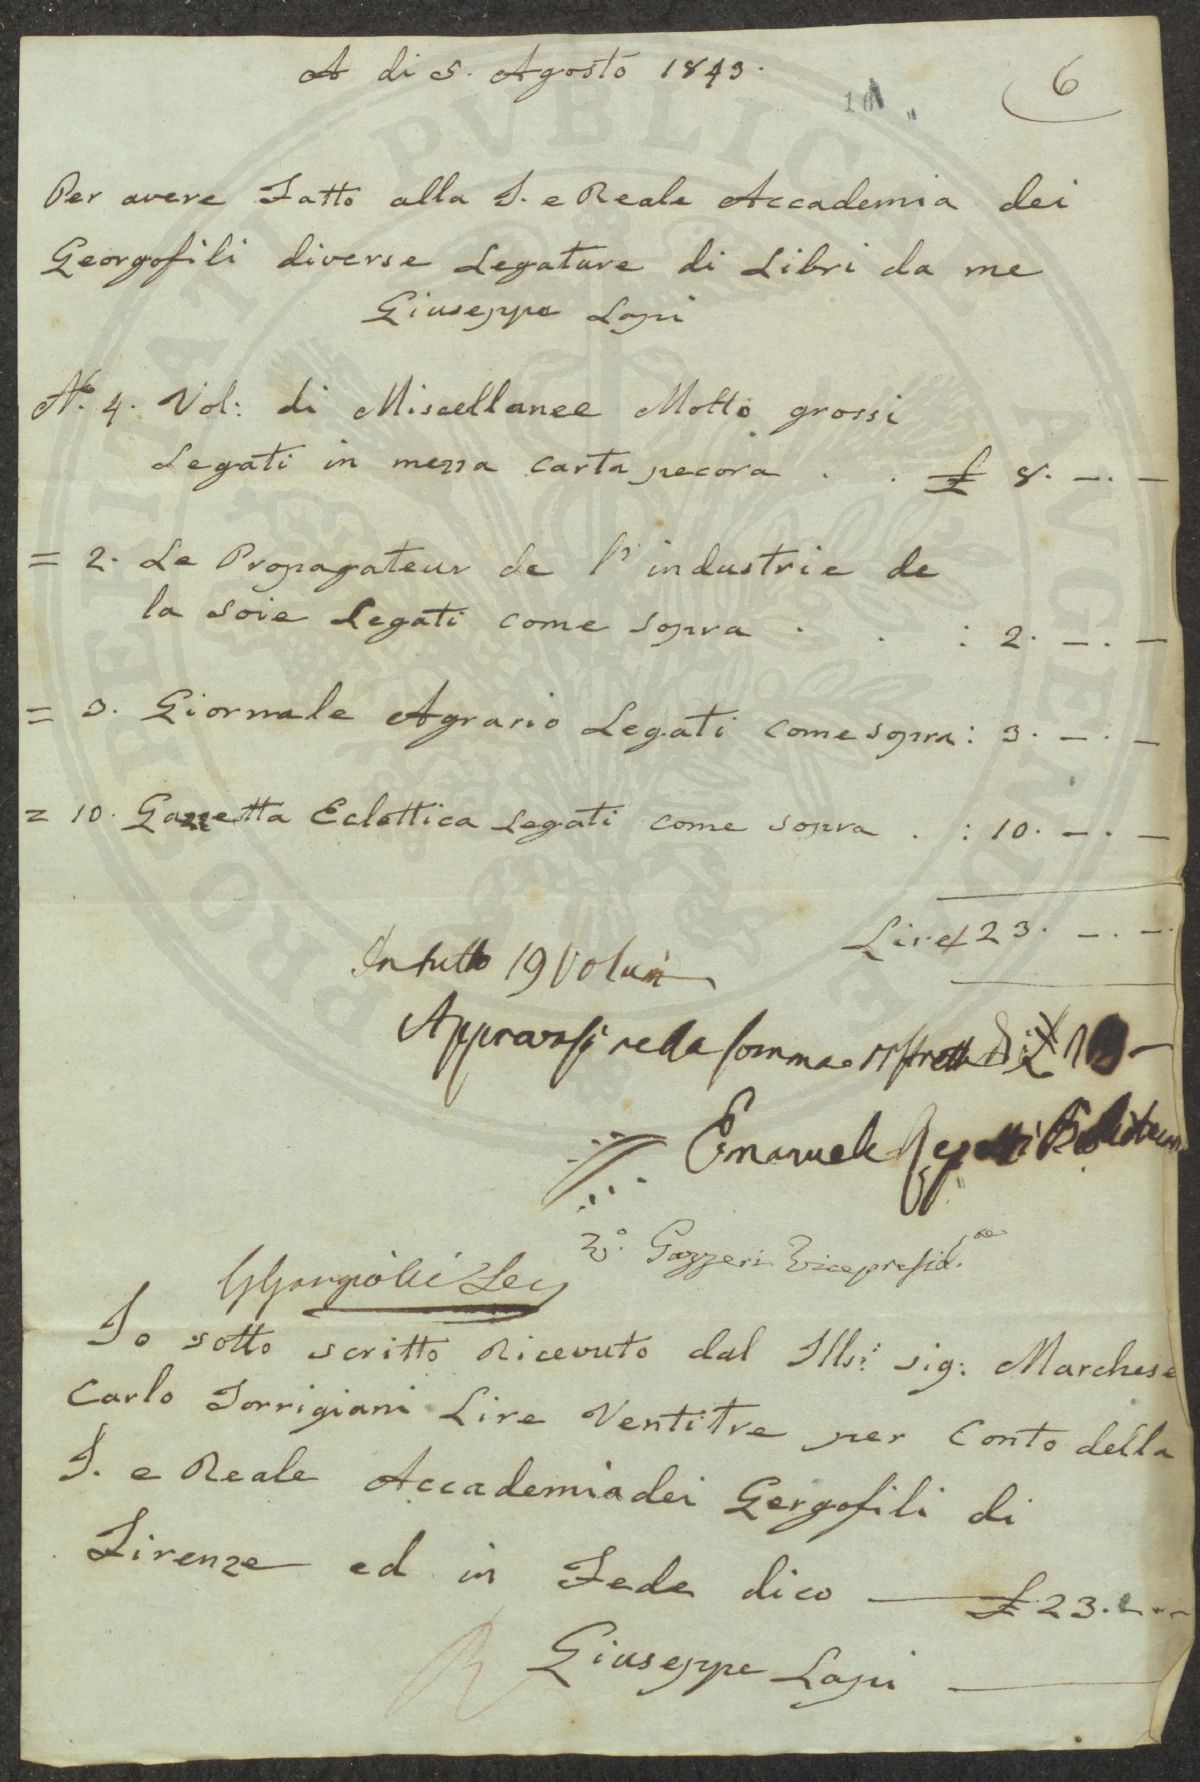 A di 5. Agosto 1843.
6
16
Per avere Fatto alla I. e Reale Accademia dei
Georgofili diverse Legature di Libri da me
Giuseppe Lapi
N.° 4. Vol: di Miscellanee Molto grossi
Legati in mezza carta pecora . . £ 8. —. —
= 2. Le Propagateur de l'industrie de
la soie Legati come sopra . . : 2. —. —
= 3. Giornale Agrario Legati come sopra : 3. —. —
= 10. Gazzetta Eclettica Legati come sopra . : 10. —. —
Lire £ 23. —. —
In tutto 19 Volumi
Approvasi nella somma di £
Emanuele Repetti Bibliotecario
V.° Gazzeri Vicepresid.te
Io sotto scritto Ricevuto dal Ills: sig: Marchese
Carlo Torrigiani Lire Ventitre per Conto della
I. e Reale Accademia dei Gergofili di
Firenze ed in Fede dico — £ 23. — . —
Giuseppe Lapi
PROPERITATI PVBLICAE AVGENDAE